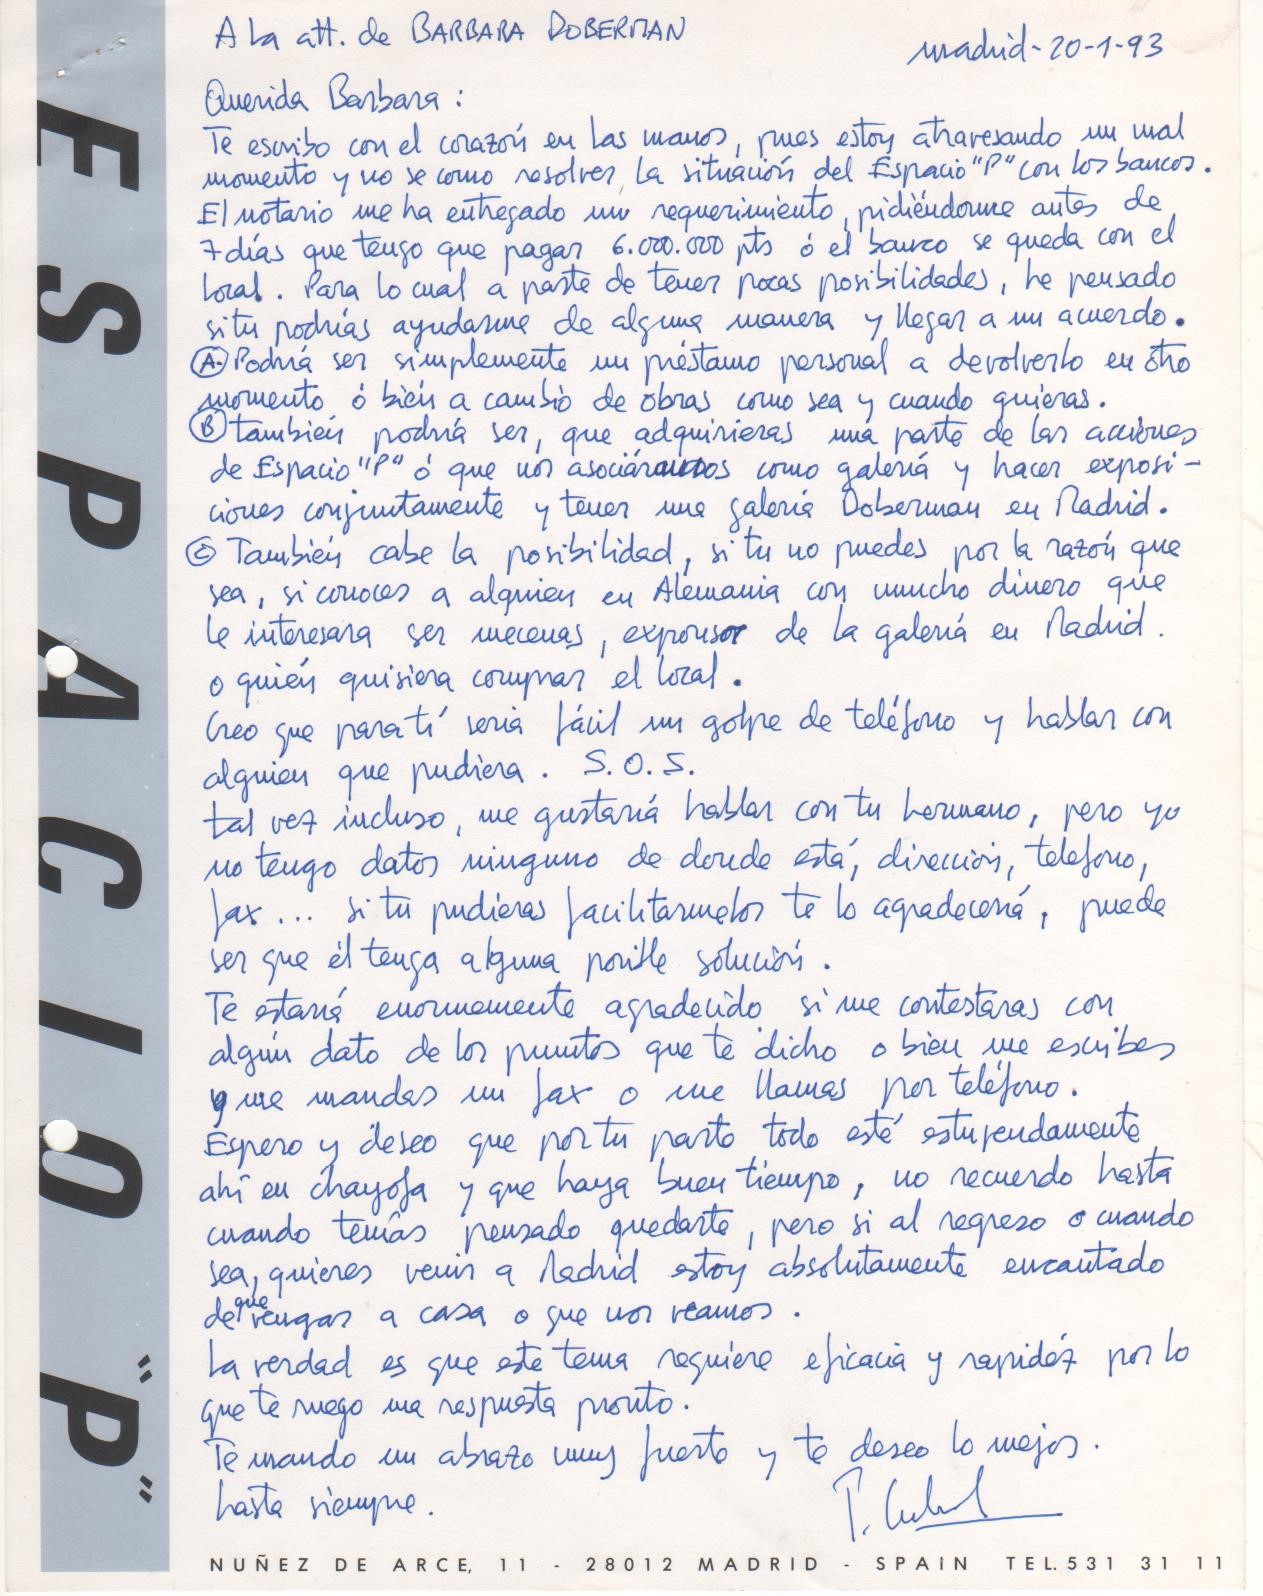 ESPACIO "P"
A la att. de BARBARA DOBERMAN
Madrid-20-1-93
Querida Barbara:
Te escribo con el corazón en las manos, pues estoy atravesando un mal
momento y no se como resolver, la situación del Espacio "P" con los bancos.
El notario me ha entregado un requerimiento, pidiéndome antes de
7 días que tengo que pagar 6.000.000 pts ó el banco se queda con el
local. Para lo cual a parte de tener pocas posibilidades, he pensado
si tu podrías ayudarme de alguna manera y llegar a un acuerdo.
A. Podría ser simplemente un préstamo personal a devolverlo en otro
momento ó bién a cambio de obras como sea y cuando quieras.
B También podría ser, que adquirieras una parte de las acciones
de Espacio "P" ó que nos asociáramos como galería y hacer exposi-
ciones conjuntamente y tener una galería Doberman en Madrid.
C También cabe la posibilidad, si tu no puedes por la razón que
sea, si conoces a alguien en Alemania con mucho dinero que
le interesara ser mecenas, exponsor de la galería en Madrid.
o quién quisiera comprar el local.
Creo que para tí seria fácil un golpe de teléfono y hablar con
alguien que pudiera. S.O.S.
tal vez incluso, me gustaría hablar con tu hermano, pero yo
no tengo datos ninguno de donde está, dirección, telefono,
fax... si tu pudieras facilitarmelos te lo agradecería, puede
ser que él tenga alguna posible solución.
Te estaría enormemente agradecido si me contestaras con
algún dato de los puntos que te dicho o bien me escribes
y me mandas un fax o me llamas por teléfono.
Espero y deseo que por tu parte todo esté estupendamente
ahí en chayofa y que haya buen tiempo, no recuerdo hasta
cuando tenías pensado quedarte, pero si al regreso o cuando
sea, quieres venir a Madrid estoy absolutamente encantado
de que vengas a casa o que nos veamos.
La verdad es que este tema requiere eficacia y rapidéz por lo
que te ruego una respuesta pronto.
Te mando un abrazo muy fuerte y te deseo lo mejor.
hasta siempre.
NUÑEZ DE ARCE, 11 - 28012 MADRID - SPAIN TEL. 531 31 11